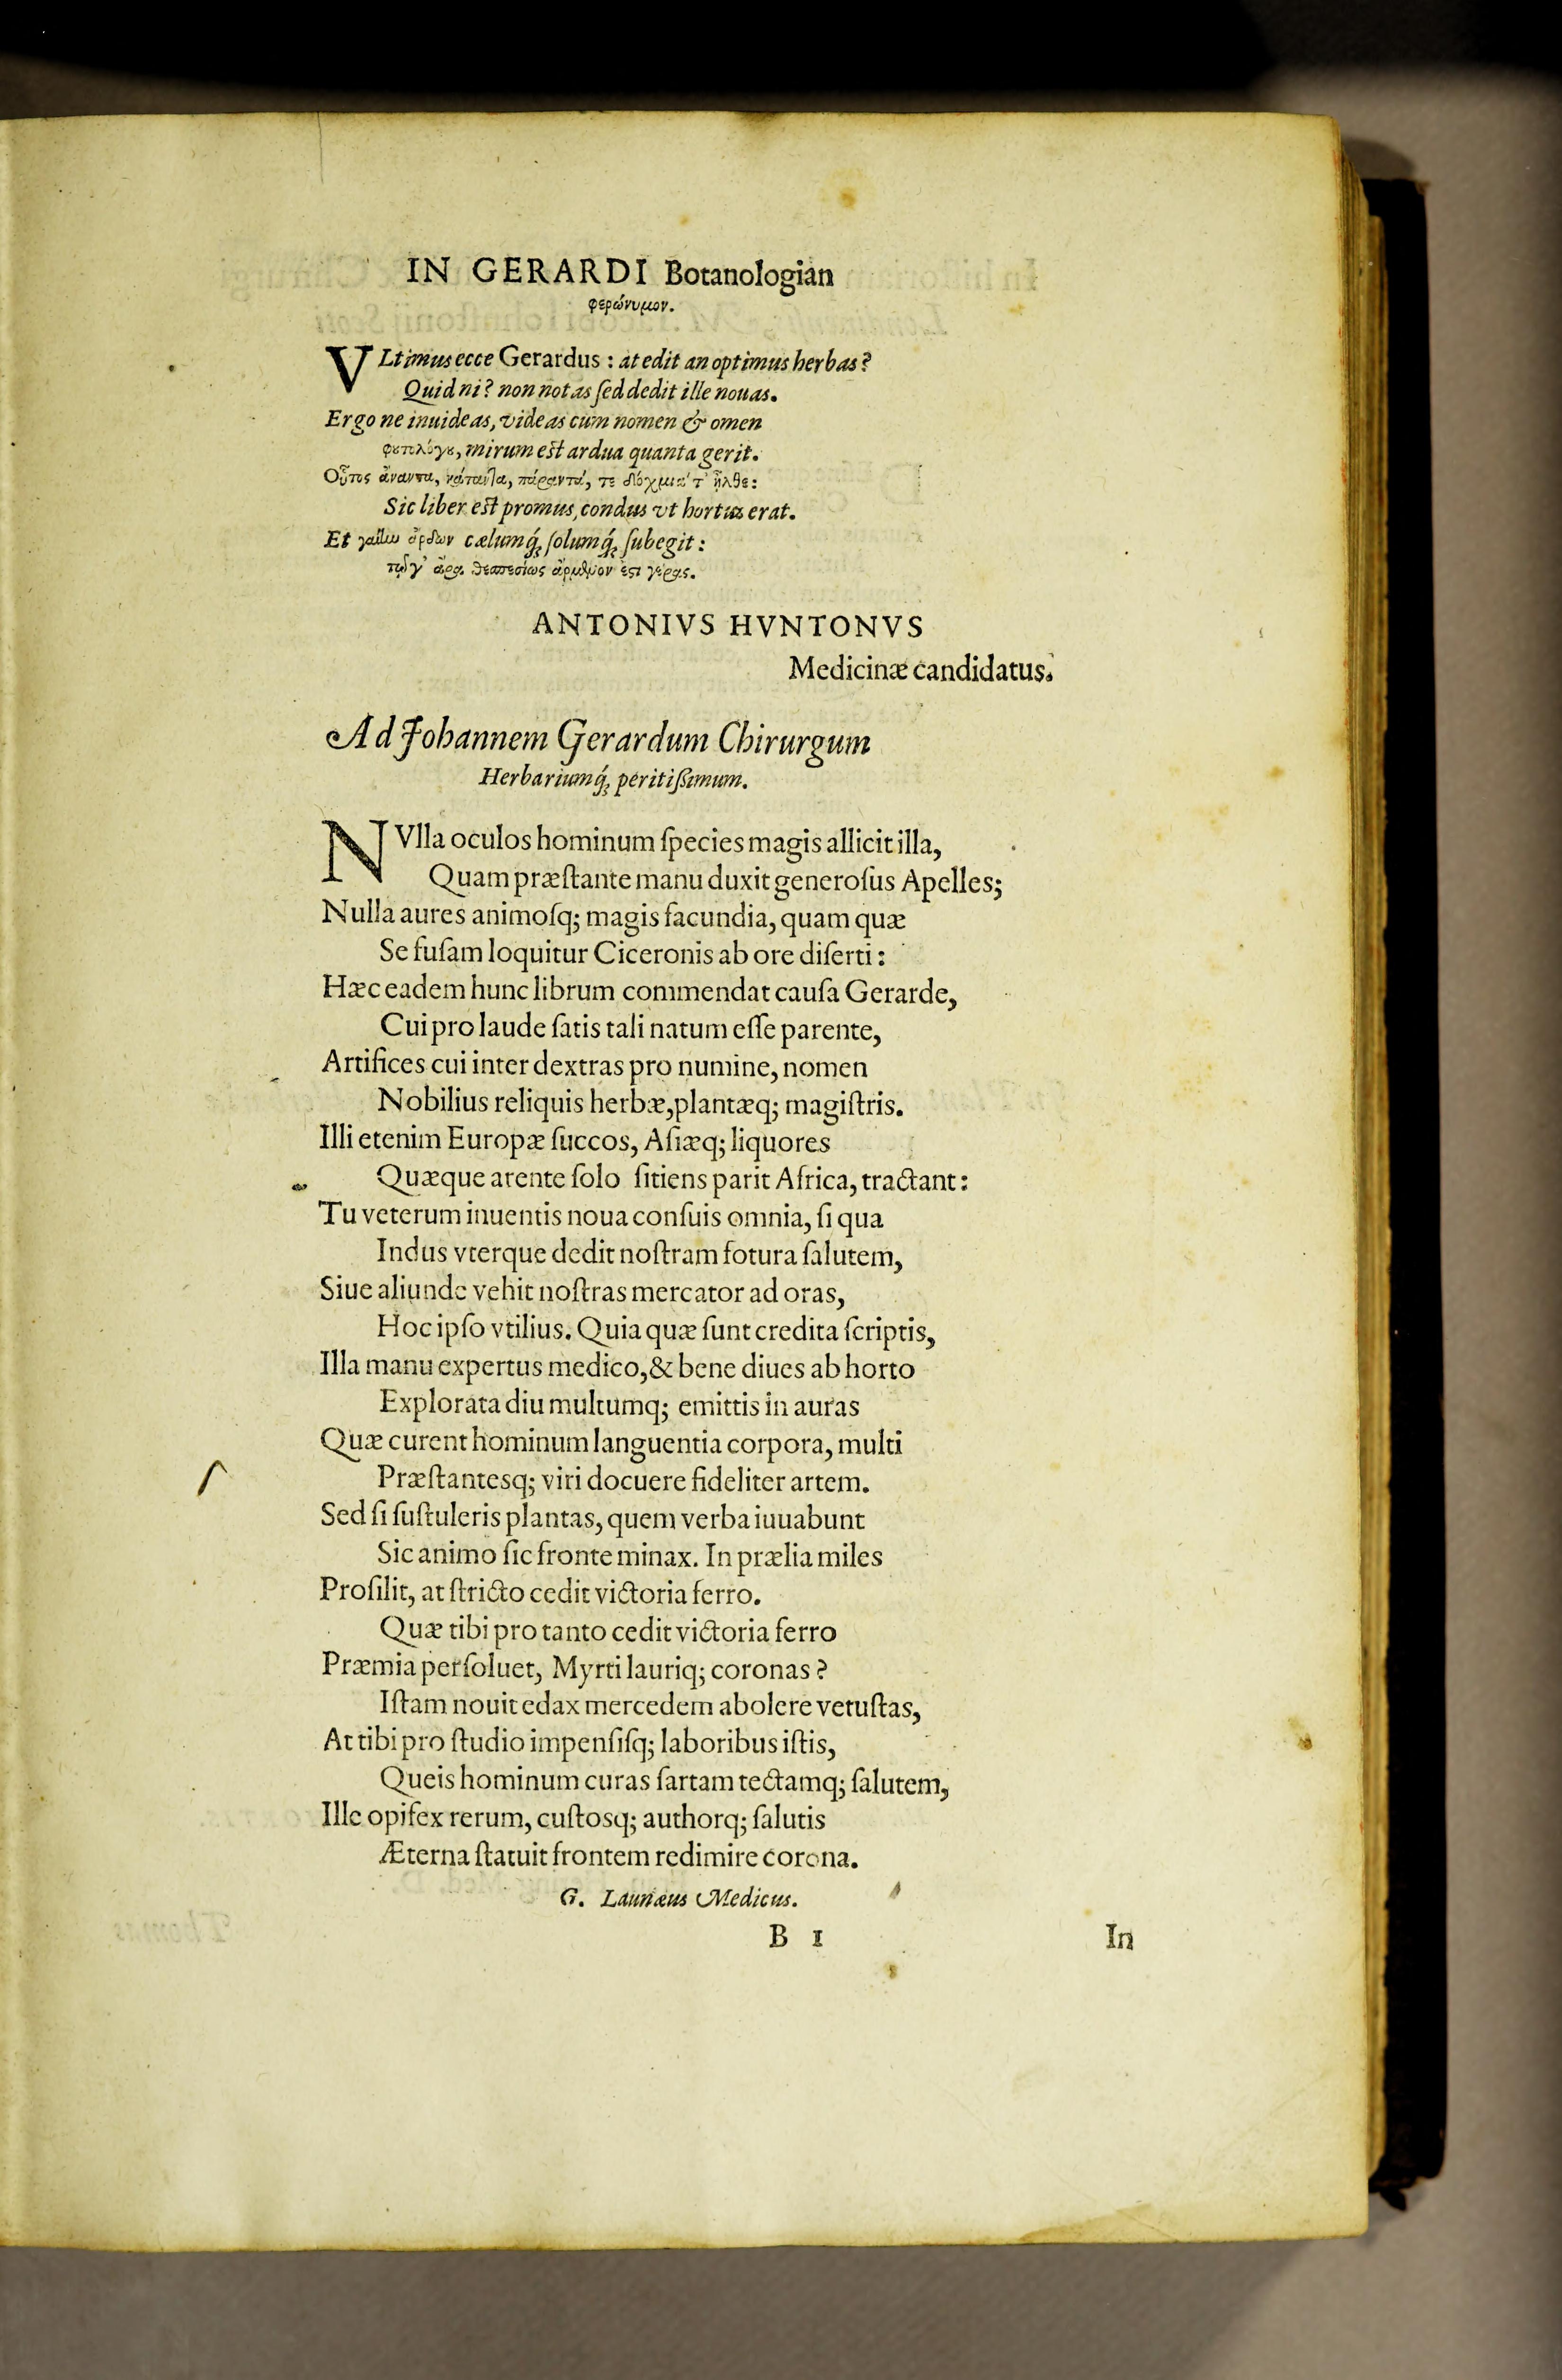 IN GERARDI Botanologian
φερώνυμον.
VLtimus ecce Gerardus : at edit an optimus herbas?
Quid ni? non notas ſed dedit ille nouas.
Ergo ne inuideas, videas cum nomen & omen
φυτολόγου, mirum eſt ardua quanta gerit.
Οὗτος ἄναντα, κάταντα, πάραντά, τε δόχμιά τ' ἦλθε:
Sic liber eſt promus, condus vt hortus erat.
Et γαῖαν cælumq́; ſolumq́; ſubegit:
ἄρα θεσπεσίως γέρας.
ANTONIVS HVNTONVS
Medicinæ candidatus.
Ad Johannem Gerardum Chirurgum
Herbariumq́; peritiſsimum.
NVlla oculos hominum ſpecies magis allicit illa,
Quam præſtante manu duxit generoſus Apelles;
Nulla aures animoſq; magis facundia, quam quæ
Se fuſam loquitur Ciceronis ab ore diſerti :
Hæc eadem hunc librum commendat cauſa Gerarde,
Cui pro laude ſatis tali natum eſſe parente,
Artifices cui inter dextras pro numine, nomen
Nobilius reliquis herbæ,plantæq; magiſtris.
Illi etenim Europæ ſuccos, Aſiæq; liquores
Quæque arente ſolo ſitiens parit Africa, tractant :
Tu veterum inuentis noua conſuis omnia, ſi qua
Indus vterque dedit noſtram fotura ſalutem,
Siue aliunde vehit noſtras mercator ad oras,
Hoc ipſo vtilius. Quia quæ ſunt credita ſcriptis,
Illa manu expertus medico,& bene diues ab horto
Explorata diu multumq; emittis in auras
Quæ curent hominum languentia corpora, multi
Præſtantesq; viri docuere fideliter artem.
Sed ſi ſuſtuleris plantas, quem verba iuuabunt
Sic animo ſic fronte minax. In prælia miles
Proſilit, at ſtricto cedit victoria ferro.
Quæ tibi pro tanto cedit victoria ferro
Præmia perſoluet, Myrti lauriq; coronas ?
Iſtam nouit edax mercedem abolere vetuſtas,
At tibi pro ſtudio impenſiſq; laboribus iſtis,
Queis hominum curas ſartam tectamq; ſalutem,
Ille opifex rerum, cuſtosq; authorq; ſalutis
Æterna ſtatuit frontem redimire corona.
G. Launæus Medicus.
B 1 In